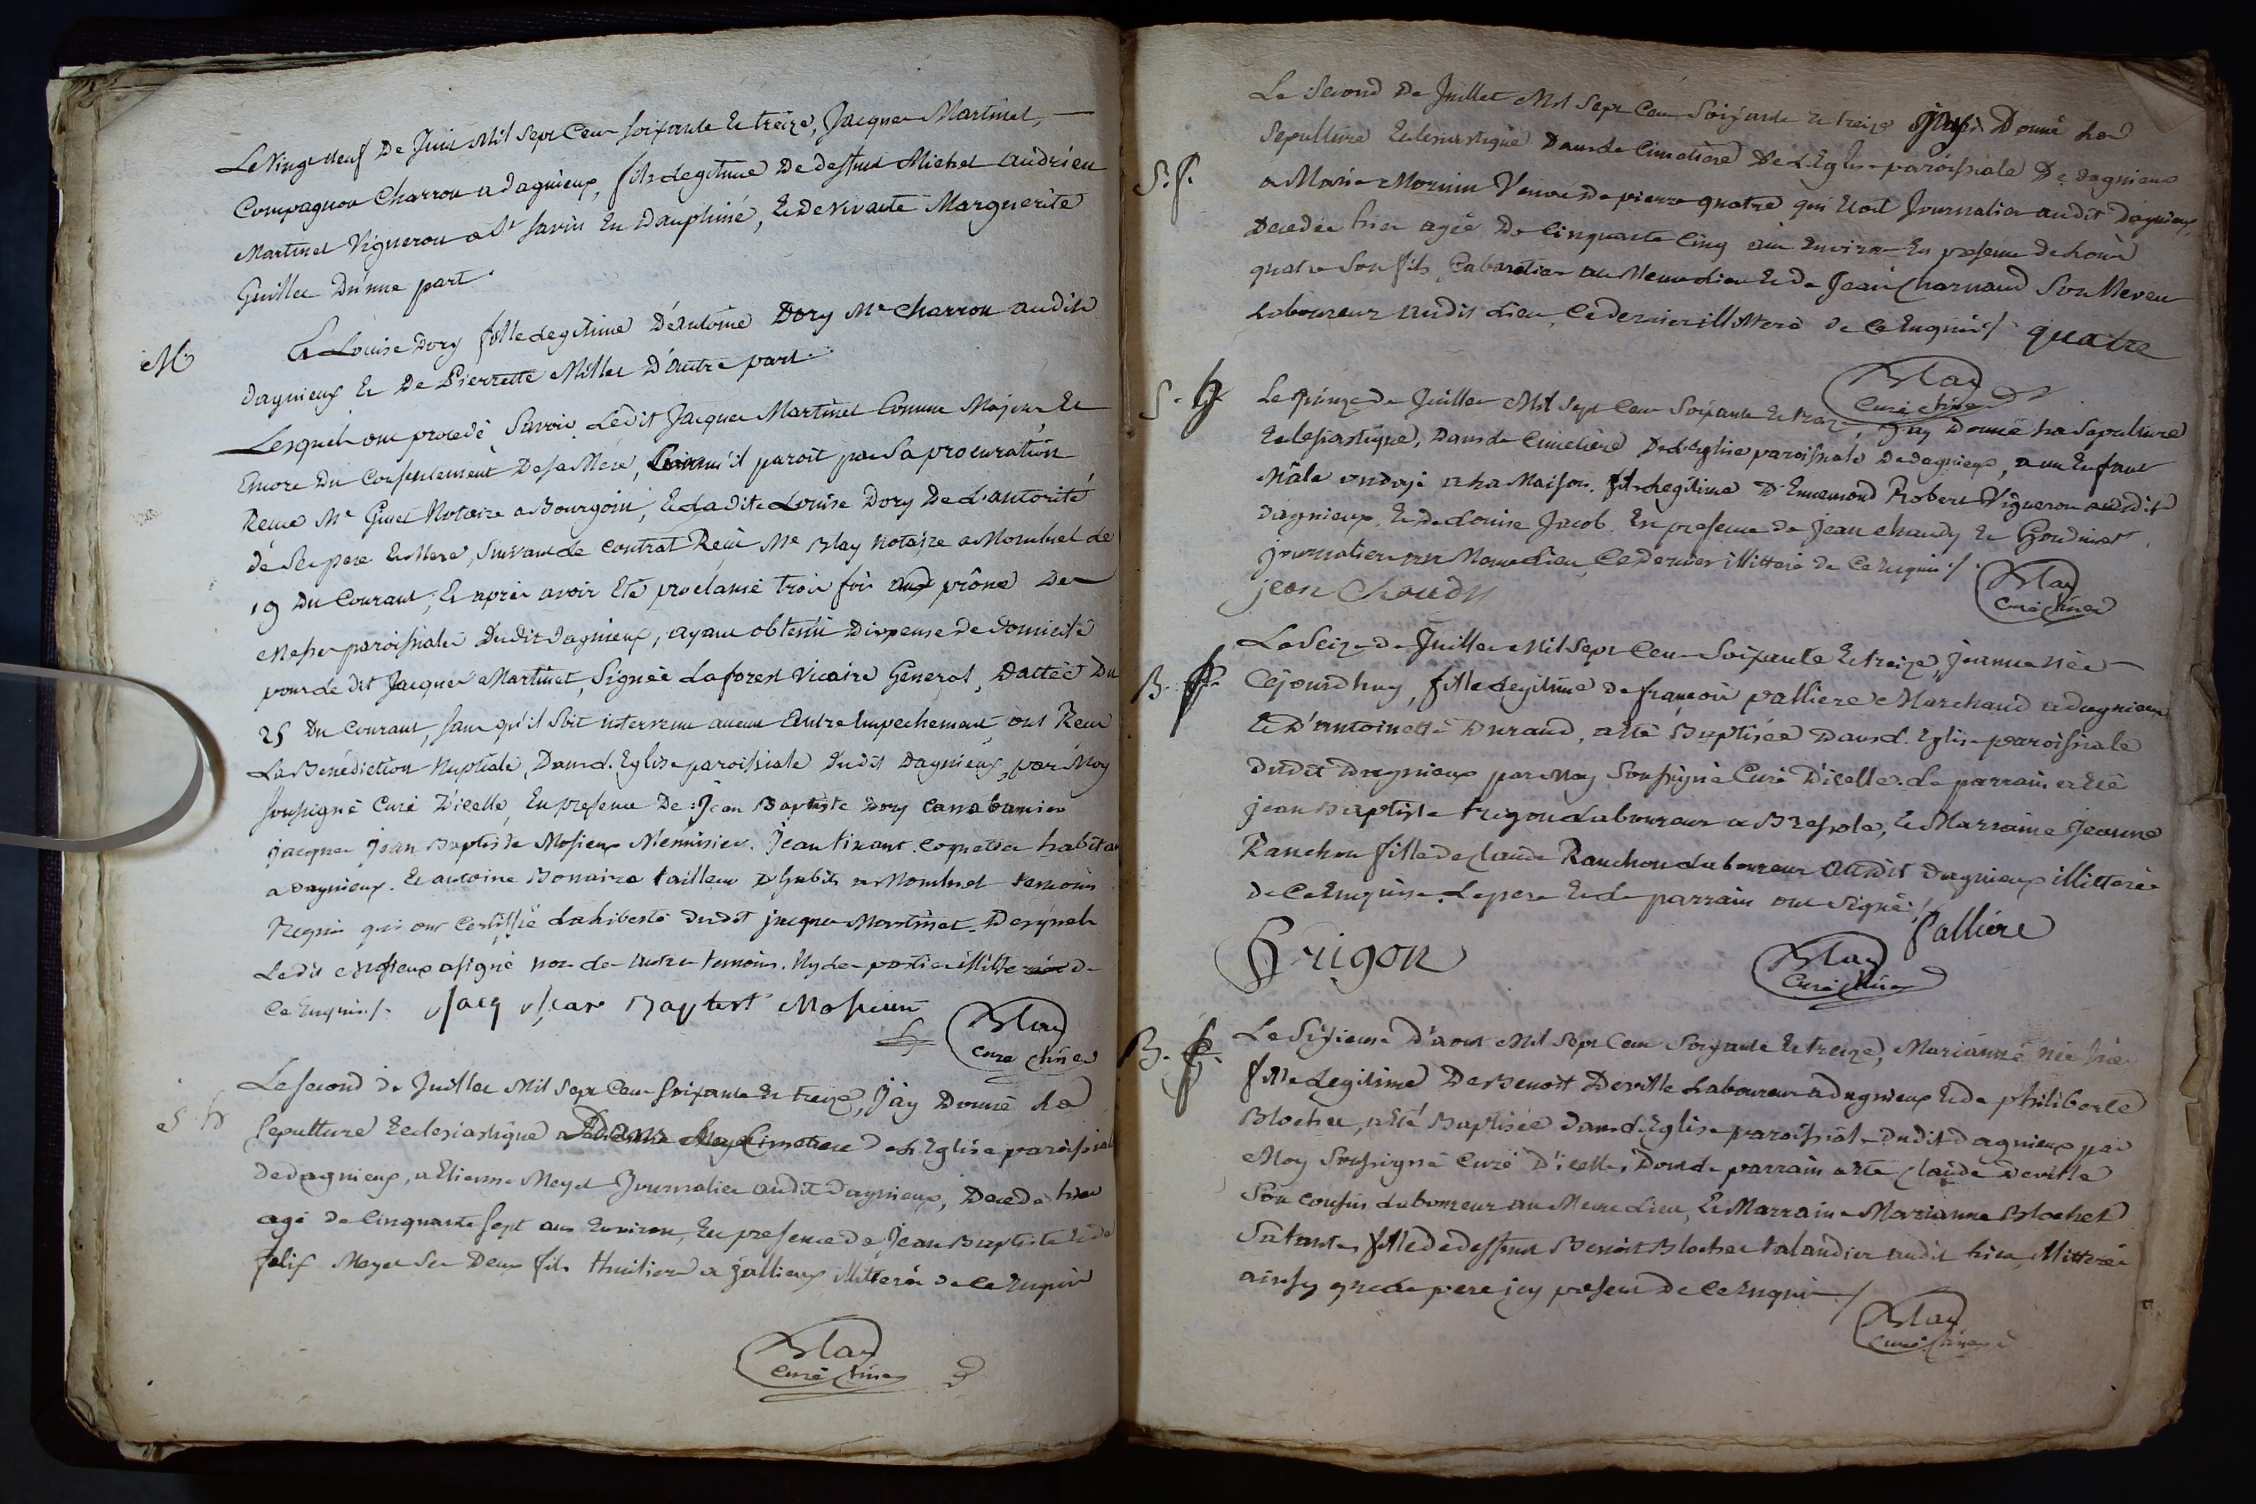 Le Vingt neuf De Juin Mil Sept Cent soixante Et treize, Jacques Martinet,
Compagnon Charron a dagnieux, fils Legitime De deffunt Michel andrieu
Martinet Vigneron a St Savin En Dauphiné, Et De vivante Marguerite
Guillet D'une part.
M.
Et Louise Dory fille Legitime D'antoine Dory Me Charron audit
dagnieux Et De Pierrette Millet D'autre part.
Lesquels ont procedé, Savoir, Ledit Jacques Martinet Comme Majeur Et
Encore Du Consentement De sa Mere, Comm'il paroit par Sa procuration
Reçue Me Ginet Notaire a Bourgoin, Et Ladite Louise Dory De L'autorité
de Ses pere Et Mere, Suivant Le Contrat Reçu Me Blay Notaire a Montluel le
19 Du Courant, Et après avoir Eté proclamé trois fois aux prône De
Messe paroissiale Dudit dagnieux, ayant obtenu Dispense de domicile
pour Le dit Jacques Martinet, Signée Laforest Vicaire General, Dattée Du
25 Du Courant, Sans qu'il Soit intervenu aucun Autre Empechement, ont Reçu
La Bénédiction Nuptiale, Dans L'Eglise paroissiale Dudit Dagnieux, par Moy
soussigné Curé D'icelle, En presence De Jean Baptiste Dory
Jacques Jean Baptiste Mosieux Menuisier. Jean
a Dagnieux. Et antoine Bonnaire tailleur D'habits a Montluel temoins
Requis qui ont Certiffié La Liberté Dudit Jacques Martinet. Desquels
Ledit Mosieux a signé non les autres temoins. Ny Les parties illitterées de
Ce Enquis /. Jacq Jean Baptist Mosieux
Blay
Curé
S. h
Le Second de Juillet Mil Sept Cent Soixante Et treize, J'ay Donné La
Sepulture Ecclesiastique Dans Le Cimetiere De L'Eglise paroissiale
De dagnieux, a Etienne Meyet Journalier audit Dagnieux, Decedé hier
agé de Cinquante Sept ans Environ, En presence de Jean Baptiste Et de
felix Meyet Ses Deux fils a jallieux illitterés de Ce Enquis
Blay
Curé
Le Second De Juillet Mil Sept Cent Soixante Et treize J'ay Donné La
Sepulture Eclesiastique Dans Le Cimetiere De L'Eglise paroissiale De dagnieux
S. f.
a Marie Mornin Veuve De pierre quatre qui Etoit Journalier audit Dagnieux
Decedée hier agée De Cinquante Cinq ans Environ En presence de
quatre Son fils, Cabaretier au Meme Lieu Et De Jean Charnaud Son Neveu
Laboureur audit Lieu, Ce dernier illitteré de Ce Enquis / quatre
Blay
Curé
S. h
Le quinze De Juillet Mil Sept Cent Soixante Et treize, J'ay Donné La Sepulture
Eclesiastique, Dans Le Cimetiere De L'Eglise paroissiale De dagnieux, a un Enfant
Mâle ondoyé a La Maison. fils Legitime D'Ennemond Robert Vigneron audit
dagnieux, Et De Louise Jacob. En presence de Jean chaudy Et
Journalier au Meme Lieu, Ce Dernier illitteré de Ce Enquis /.
jean Chaudy
Blay
Curé
Le Seize de Juillet Mil Sept Cent Soixante Et treize, Jeanne née
B. f.
Cejourdhuy, fille Legitime de françois palliere Marchand a dagnieux
Et D'antoinette Durand, a Eté Baptisée Dans L'Eglise paroissiale
Dudit Dagnieux par Moy Soussigné Curé D'icelle. Le parrain a Eté
Jean Baptiste trigon Laboureur a Bressole, Et Marraine Jeanne
Ranchon fille de Claude Ranchon Laboureur audit dagnieux illitterée
de Ce Enquise. Le pere Et Le parrain ont Signé /
Palliere
Trigon
Blay
Curé
B. f.
Le Sixieme D'aout Mil Sept Cent Soixante Et treize, Marianne née hier
fille Legitime De Benoit Deville Laboureur a dagnieux Et De philiberte
Blochet, a Eté Baptisée dans L'Eglise paroissiale Dudit dagnieux par
Moy Soussigné Curé D'icelle, Dont Le parrain a Eté Claude Deville
Son cousin Laboureur au Meme Lieu, Et Marraine Marianne Blochet
Sa tante, fille de deffunt Benoit Blochet taland­ier audit Lieu, illitterés
ainsy que Le pere icy present de Ce Enquis /
Blay
Curé